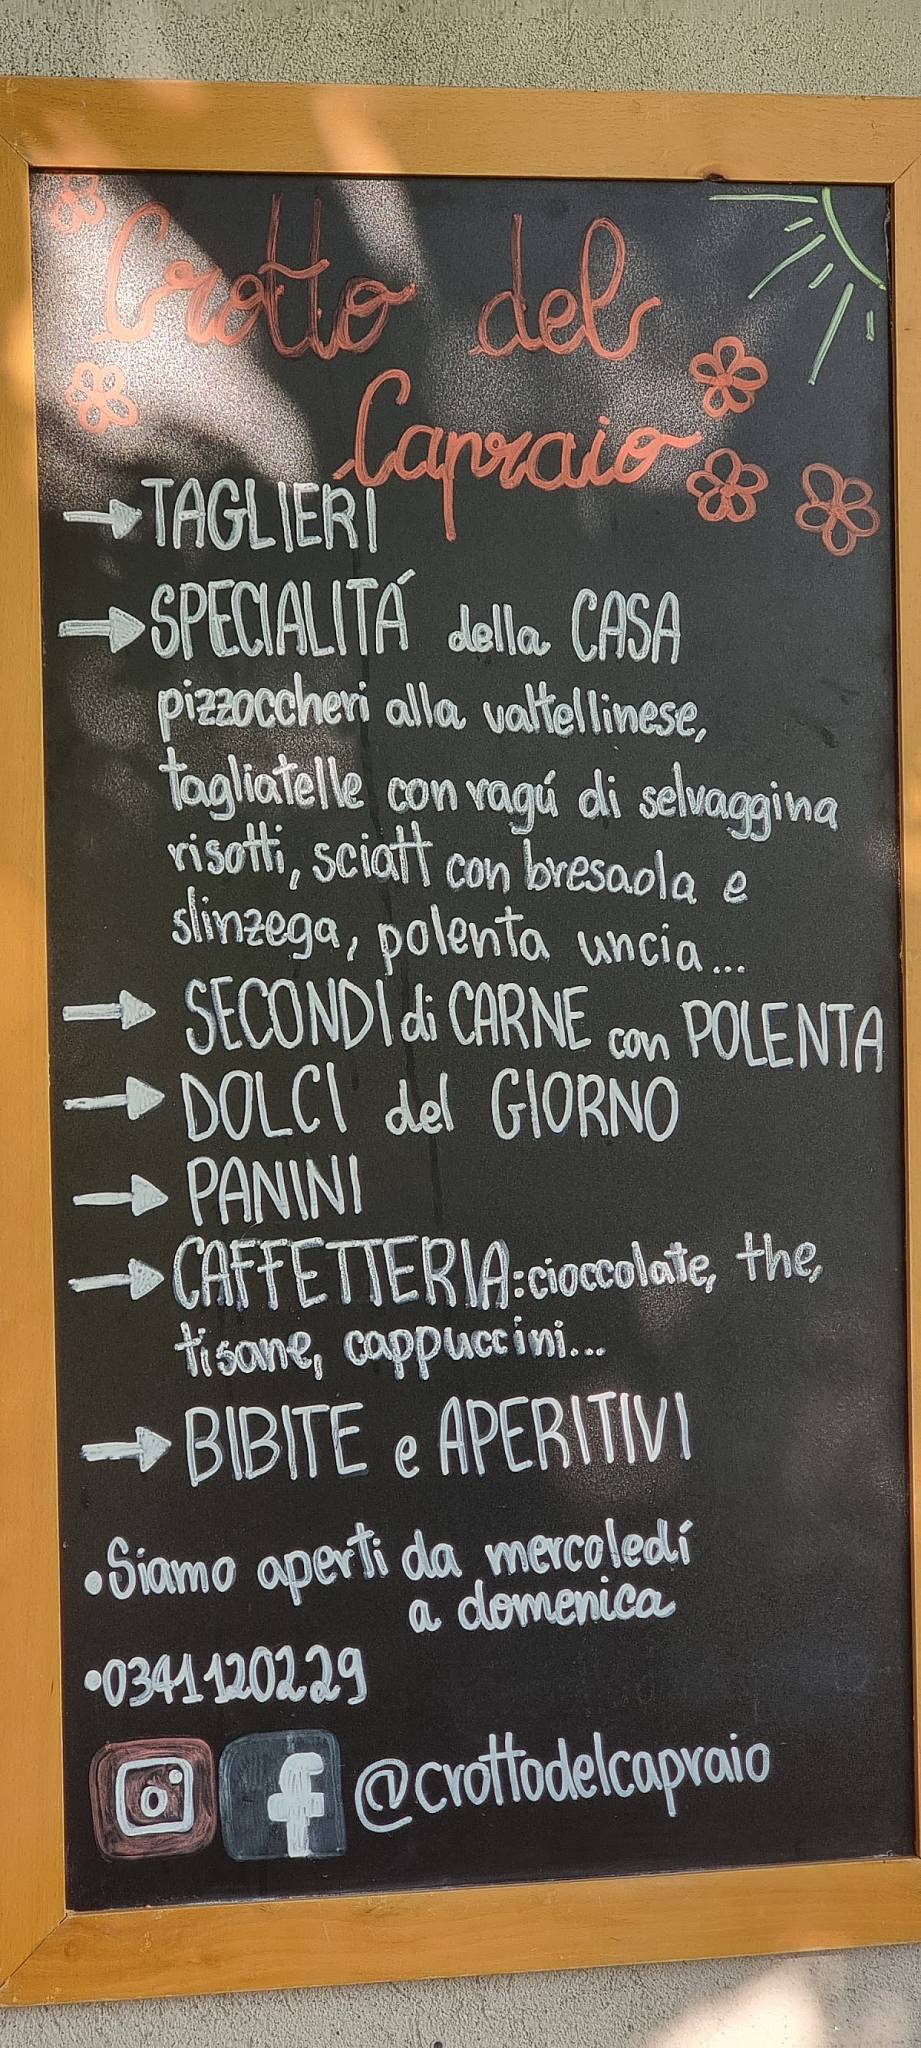 Crotto del
Capraio
TAGLIERI
SPECIALITÁ della CASA
pizzoccheri alla valtellinese,
tagliatelle con ragú di selvaggina
risotti, sciatt con bresaola e
slinzega, polenta uncia...
SECONDI di CARNE con POLENTA
DOLCI del GIORNO
PANINI
CAFFETTERIA: cioccolate, the,
tisane, cappuccini...
BIBITE e APERITIVI
•Siamo aperti da mercoledí
a domenica
•0341120229
f @crottodelcapraio